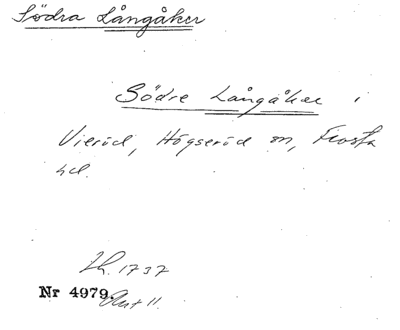 Södra Långåker
Södre Långåker i
Vieröd, Högseröd sn, Frosta
hd.
Lh. 1737
Nr 4979.